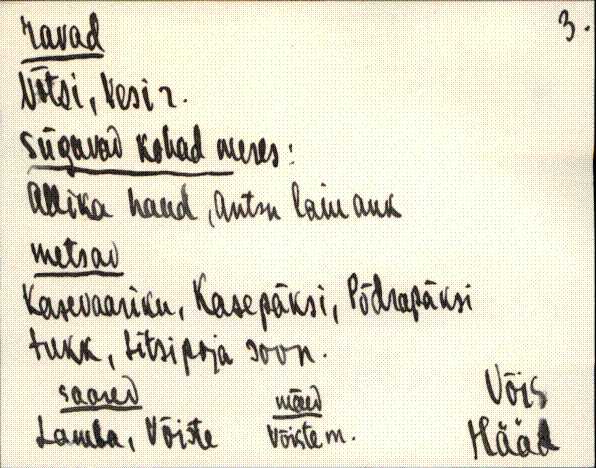 3.
ravad
Võtsi, Vesi r.
sügavad kohad meres:
Allika haud, Antsu lain auk
metsad
Kasevaariku, Kasepäksi, Põdrapäksi
tukk, Litsipoja soon.
saared mäed
Lamba, Võiste Võiste m.
Võis
Hääd